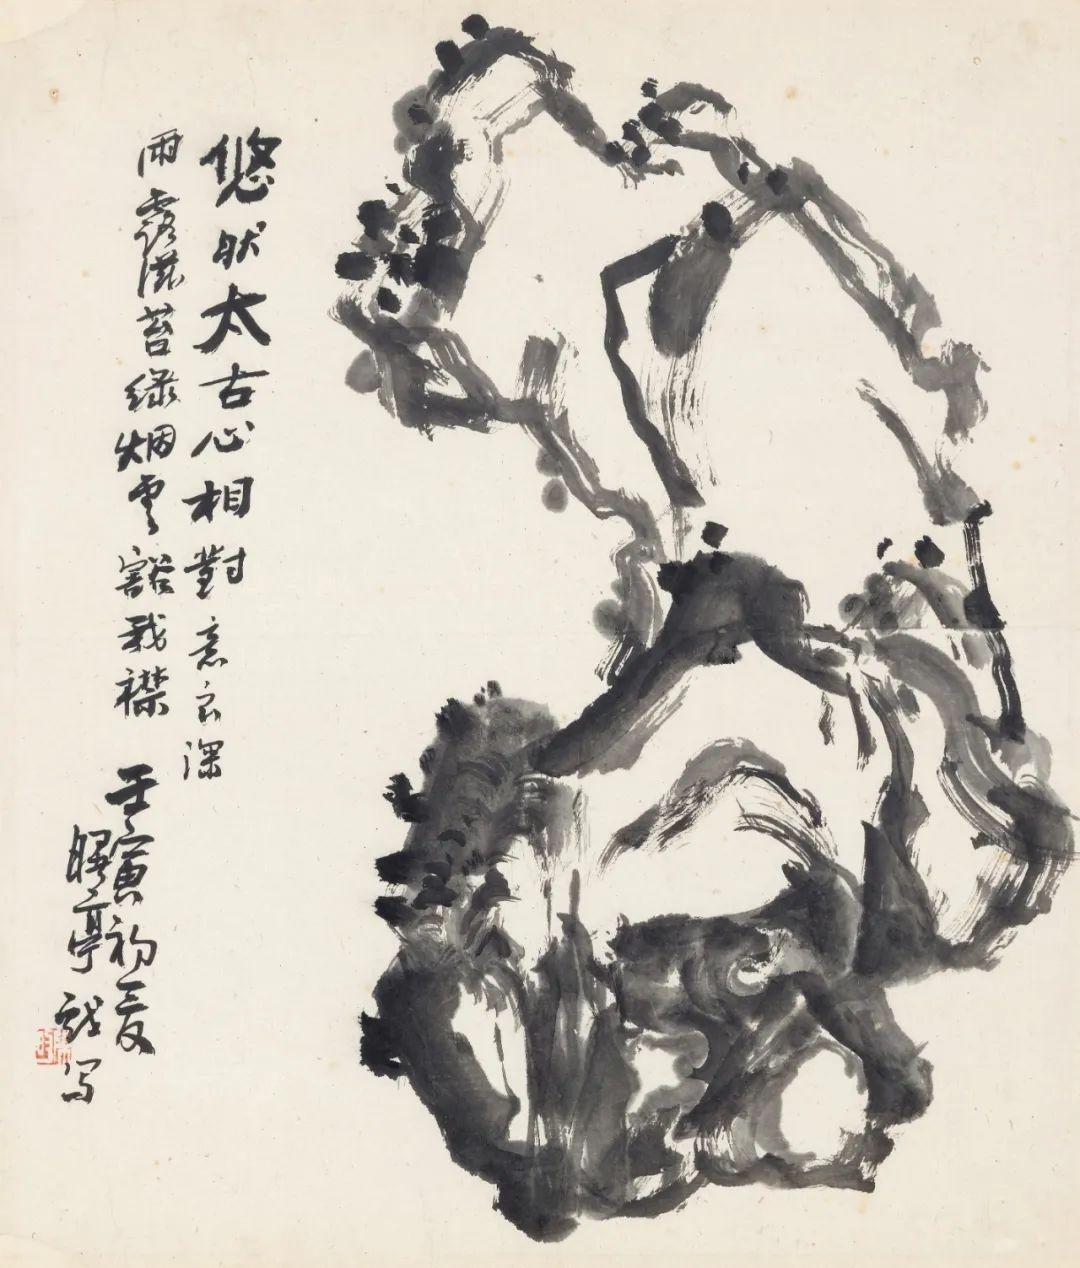 悠然太古心相對意良深
雨露滋苔绿烟雲豁我襟
壬寅初夏
亭写